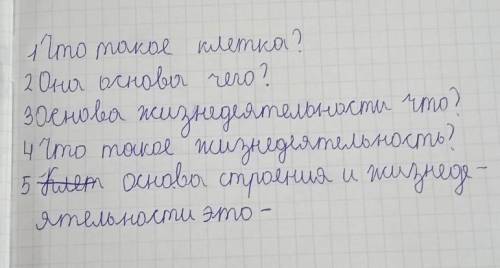 1 Что такое клетка?
2 Она основа чего?
3 Основа жизнедеятельности что?
4 Что такое жизнедеятельность?
5 Клет основа строения и жизнеде-
ятельности это -